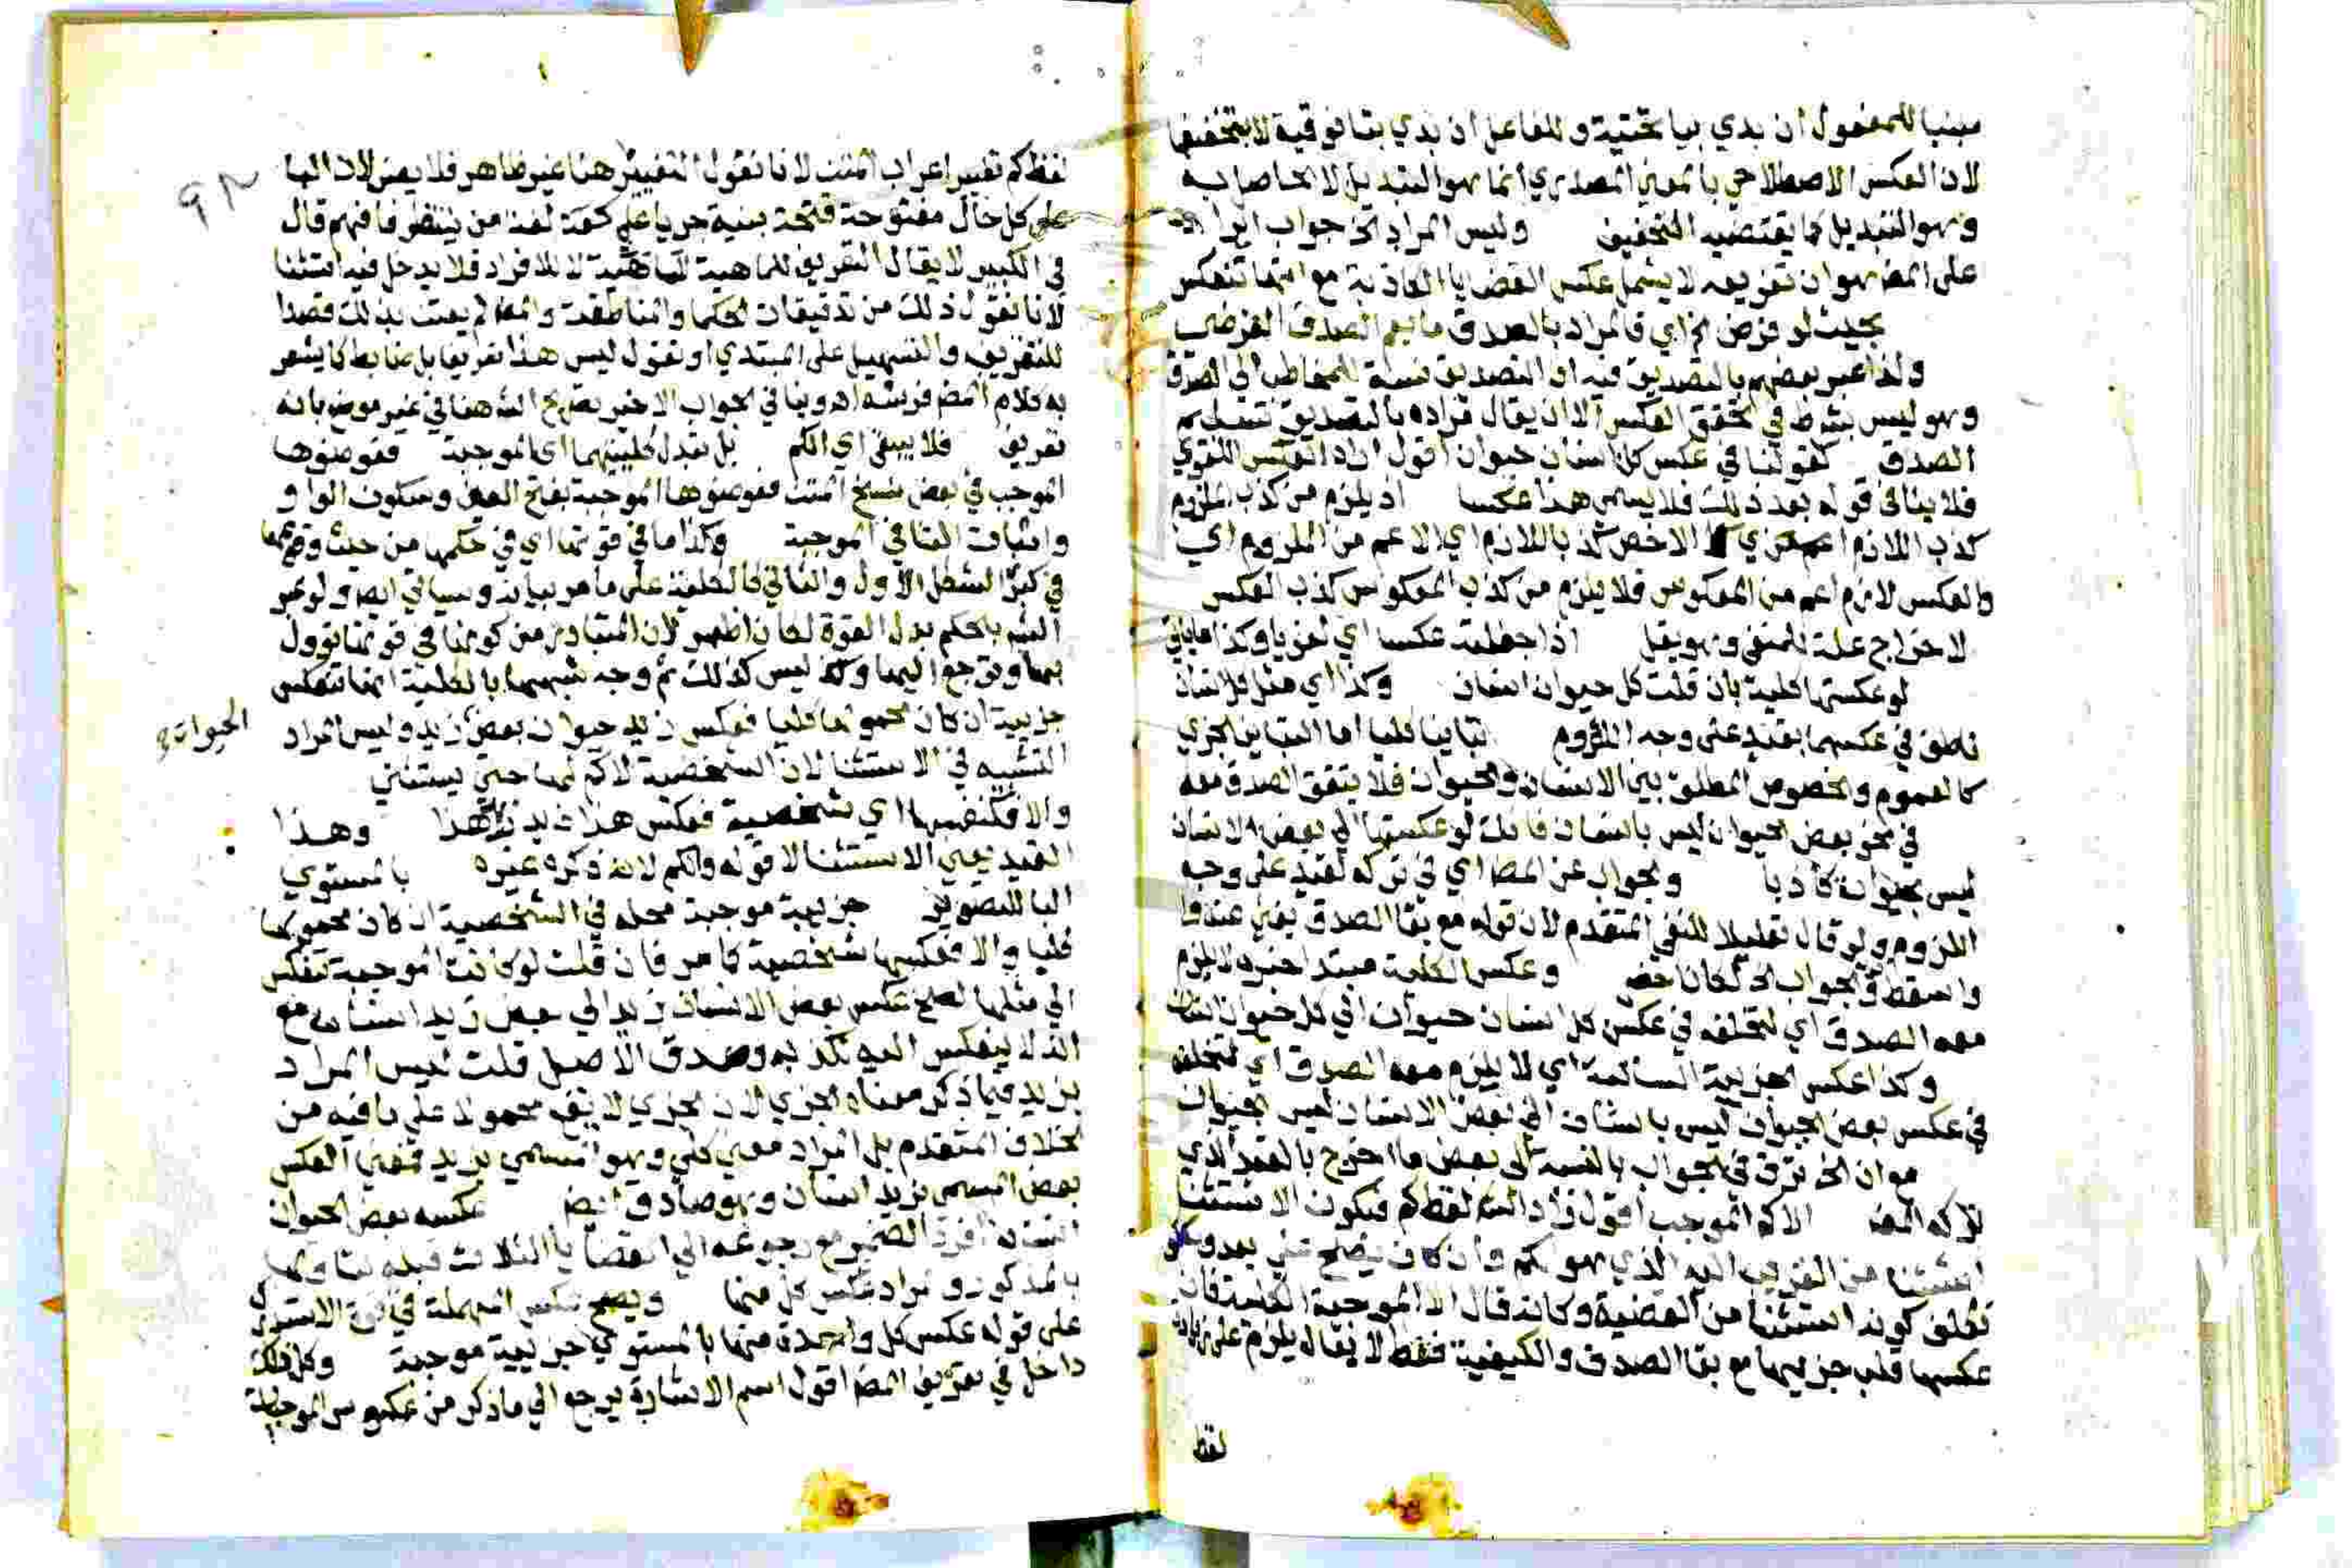 مبنيا للمفعول ان بدي بيا تحتية وللفاعل ان بدي بتا فوقية لا بتخفيفها
لان العكس الاصطلاحي بالمعني المصدري انما هو التبديل لا الحاصل به
وهو التبدل كما يقتضيه التخفيف وليس المراد الخ جواب ايراد
على المص هو ان تعريفه لا يشمل عكس القضايا الكاذبة مع انها تنعكس
بحيث لو فرض الخ اي فالمراد بالصدق ما يعم الصدق الفرضي
ولذا عبر بعضهم بالتصديق فيه ان التصديق نسبة المخاطب الي الصدق
وهو ليس بشرط في تحقق العكس الا ان يقال مراده بالتصديق تسليم
الصدق كقولنا في عكس كل انسان حيوان اقول اراد العكس اللغوي
فلا ينافي قوله بعد ذلك فلا يسمى هذا عكسا اذ يلزم من كذب الملزوم
كذب اللازم الاخص كذب اللازم اي الاعم من الملزوم اي
والعكس لازم اعم من المعكوس فلا يلزم من كذب المعكوس كذب العكس
لاخراج علة للمنفي وهو يقل اذا جعلته عكسا اي لغويا وكذا ما ياتي
لو عكستها كلية بان قلت كل حيوان انسان وكذا اي مثل كل انسان
ناطق في عكسها بقيد على وجه اللزوم تباينا كليا اما التباين الجزي
كالعموم والخصوص المطلق بين الانسان والحيوان فلا يتفق الصدق معه
في نحو بعض الحيوان ليس بانسان فانك لو عكستها الي بعض الانسان
ليس بحيوان كان كاذبا والجواب عن المص اي في تركه لقيد على وجه
اللزوم ولو قال تعليلا للنفي المتقدم لان قوله مع بقا الصدق يغني عنه
واسقط والجواب الخ لكان اخصر وعكس الكلية مبتدا خبره لا يلزم
معه الصدق اي لتخلفه في عكس كل انسان حيوان الي كل حيوان انسان
وكذا عكس الجزيية السالبة اي لا يلزم معه الصدق اي لتخلفه
في عكس بعض الحيوان ليس بانسان الي بعض الانسان ليس بحيوان
هو ان الخ ترق في الجواب بالنسبة الى بعض ما اخرج بالقيد الذي
تركه المص الا كم الموجب اقول زاد الشم لفظ كم فيكون الاستثنا
استثنا من القريب اليه الذي هو الكم وان كان يصلح شي بعده
تعلق كونه استثنا من القضية وكانه قال الا الموجبة الكلية فان
عكسها قلب جزييها مع بقا الصدق والكيفية فقط لا يقال يلزم على زيادة
لفظ
٩٢
لفظ كم تغيير اعراب المتن لانا نقول التغيير هنا غير ظاهر فلا يضر لان الها
على كل حال مفتوحة فتحة بنية جريا على لغة من ينتظر فافهم قال
في الكبير لا يقال التعريف للماهية لا للافراد فلا يدخل فيه استثنا
لانا نقول ذلك من تدقيقات الحكما والمناطقة والمص لم يعتن بذلك قصدا
للتقريب والتسهيل على المبتدي او نقول ليس هذا تعريفا بل ضابط كما يشعر
به كلام المص في شرحه اه وينافي الجواب الاخير تصريح الشم هنا في غير موضع بانه
تعريف فلا يبقى اي الكم بل تبدل كليتها اي الموجبة فعوضوها
الموجب في بعض نسخ المتن فعوضوها الموجبة بفتح العين وسكون الواو
واثبات التا في الموجبة وكذا ما في قوتها اي في حكمها من حيث وقوعها
في كبرى الشكل الاول والثاني كالكلية على ما مر بيانه وسياتي ايضا ولو عبر
الشم بالحكم بدل القوة لكان اظهر لان المتبادر من كونها في قوتها تؤول
بها وترجع اليها وليس كذلك ثم وجه شبهها بالكلية انها تنعكس
جزيية ان كان محمولها كليا فعكس زيد حيوان بعض الحيوان زيد وليس المراد
التشبيه في الاستثنا لان الشخصية لا كم لها حتى يستثني
والا فكنفسها اي شخصية فعكس هذا زيد زيد هذا وهذا
القيد يعني الاستثنا لا قوله والكم لانه ذكره غيره بالمستوي
البا للتصوير جزيية موجبة محله في الشخصية ان كان محمولها
كليا والا فعكسها شخصية كما مر فان قلت لو كانت الموجبة تنعكس
الي مثلها لصح عكس بعض الانسان زيد الي بعض زيد انسان مع
انه لا ينعكس اليه لكذبه وصدق الاصل قلت ليس المراد
بزيد فيما ذكر معناه الجزي لان الجزي لا يقع محمولا على ما فيه من
الخلاف المتقدم بل المراد معني كلي وهو المسمي بزيد فمعني العكس
بعض المسمي بزيد انسان وهو صادق ايضا عكسه بعض الحيوان
انسان افرد الضمير مع رجوعه الي القضايا الثلاث قبله لتاويلها
بالمذكور او المراد عكس كل منها ويصح عكس المهملة في قوة الاستدراك
على قوله عكس كل واحدة منها بالمستوي جزيية موجبة وكل ذلك
داخل في تعريف المص اقول اسم الاشارة يرجع الي ما ذكر من عكوس الموجبات
الحيوان